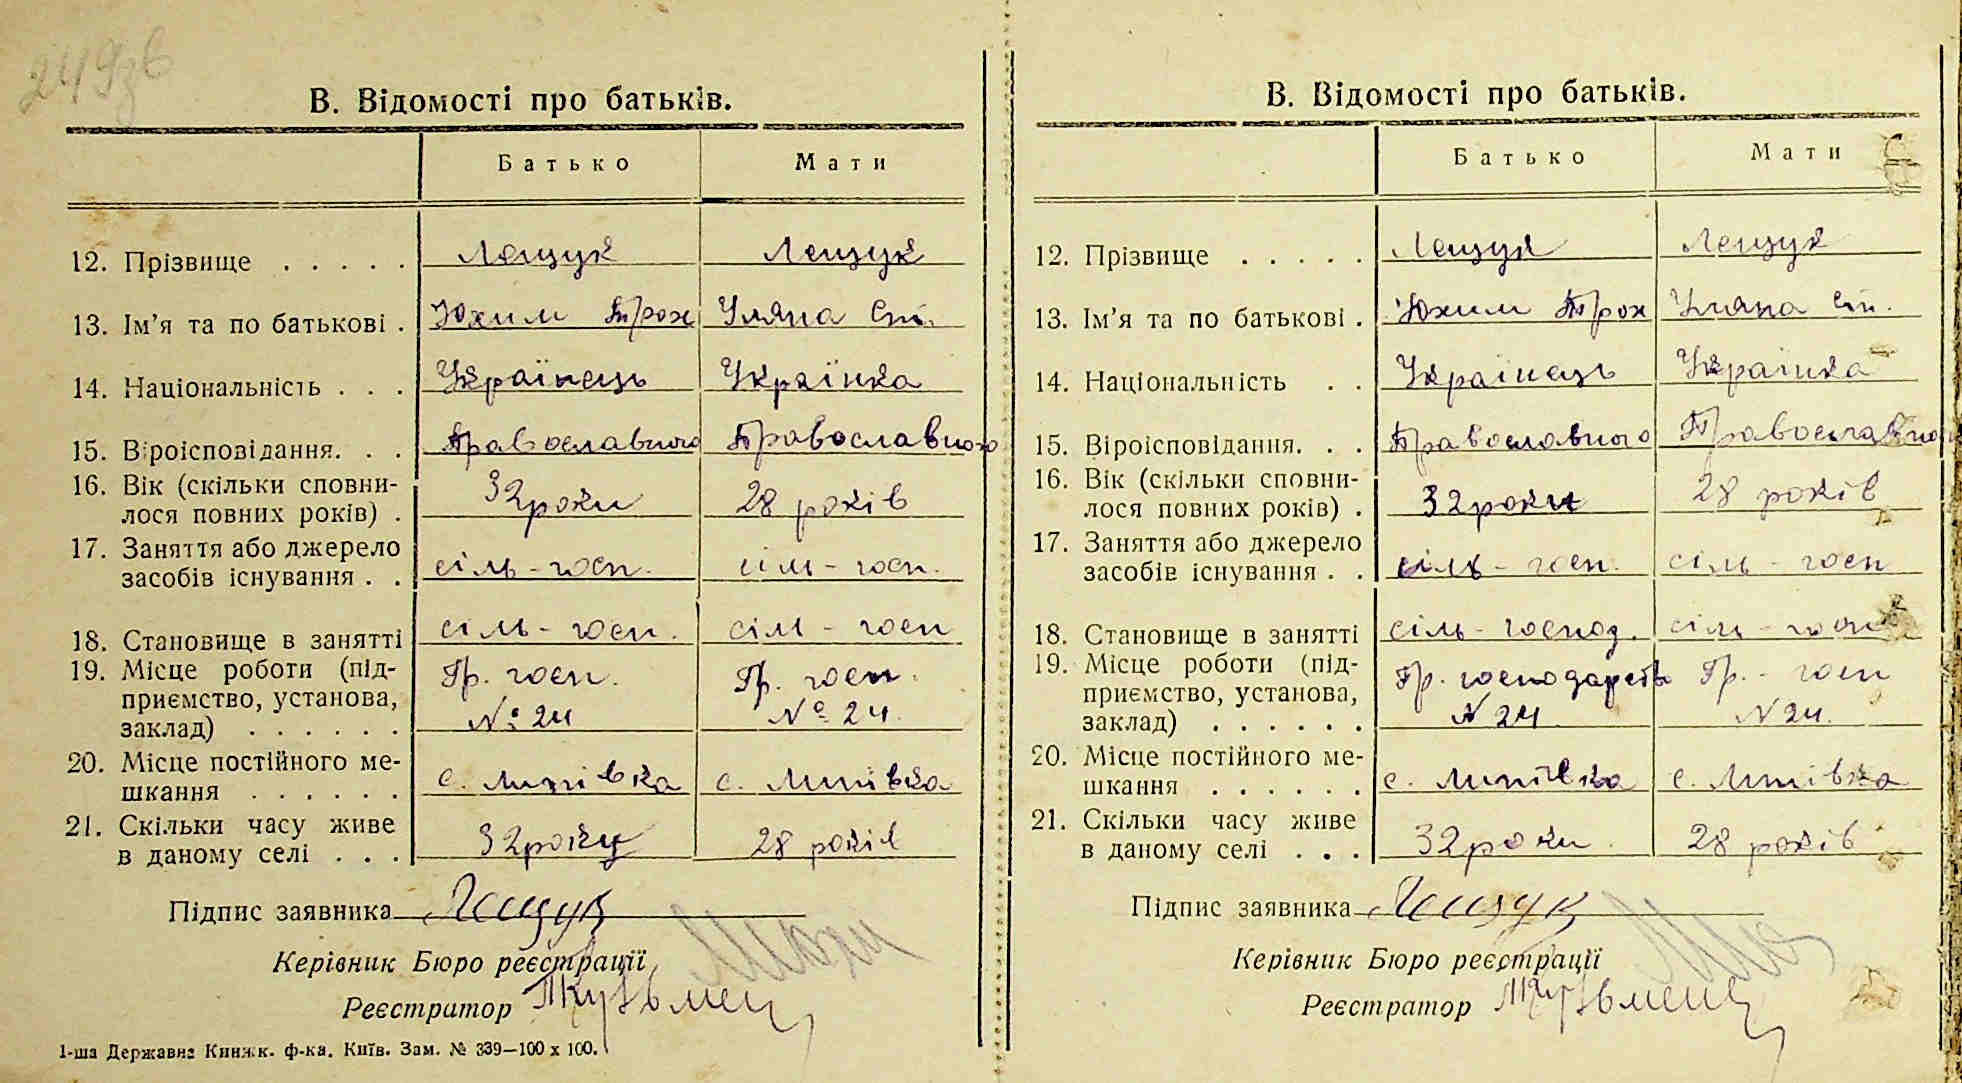 249зв
В. Відомості про батьків.
Батько Мати
12. Прізвище . . . . . Лещук Лещук
13. Ім’я та по батькові . Юхим Трох Уляна Сте.
14. Національність . . . Українець Українка
15. Віроісповідання. . . Православного Православного
16. Вік (скільки сповни-
лося повних років) . 32 роки 28 років
17. Заняття або джерело
засобів існування . . сіль-госп. сіль-госп.
18. Становище в занятті сіль-госп. сіль-госп
19. Місце роботи (під- Гр. госп. Гр. госп.
приємство, установа,
заклад) . . . . . . № 24 № 24.
20. Місце постійного ме-
шкання . . . . . . с. Липівка с. Липівка
21. Скільки часу живе
в даному селі . . . 32 роки 28 років
Підпис заявника Лещук
Керівник Бюро реєстрації
Реєстратор
1-ша Державна Книжк. ф-ка. Київ. Зам. № 339—100 х 100.
В. Відомості про батьків.
Батько Мати
12. Прізвище . . . . . Лещук Лещук
13. Ім’я та по батькові . Юхим Трох Уляна Сте.
14. Національність . . Українець Українка
15. Віроісповідання. . . Православного Православного
16. Вік (скільки сповни-
лося повних років) . 32 роки 28 років
17. Заняття або джерело
засобів існування . . сіль-госп. сіль-госп
18. Становище в занятті сіль-господ. сіль-госп
19. Місце роботи (під- Гр. господарств Гр. госп
приємство, установа,
заклад) . . . . . . N 24 N 24.
20. Місце постійного ме-
шкання . . . . . . с. Липівка с. Липівка
21. Скільки часу живе
в даному селі . . . 32 роки 28 років
Підпис заявника Лещук
Керівник Бюро реєстрації
Реєстратор